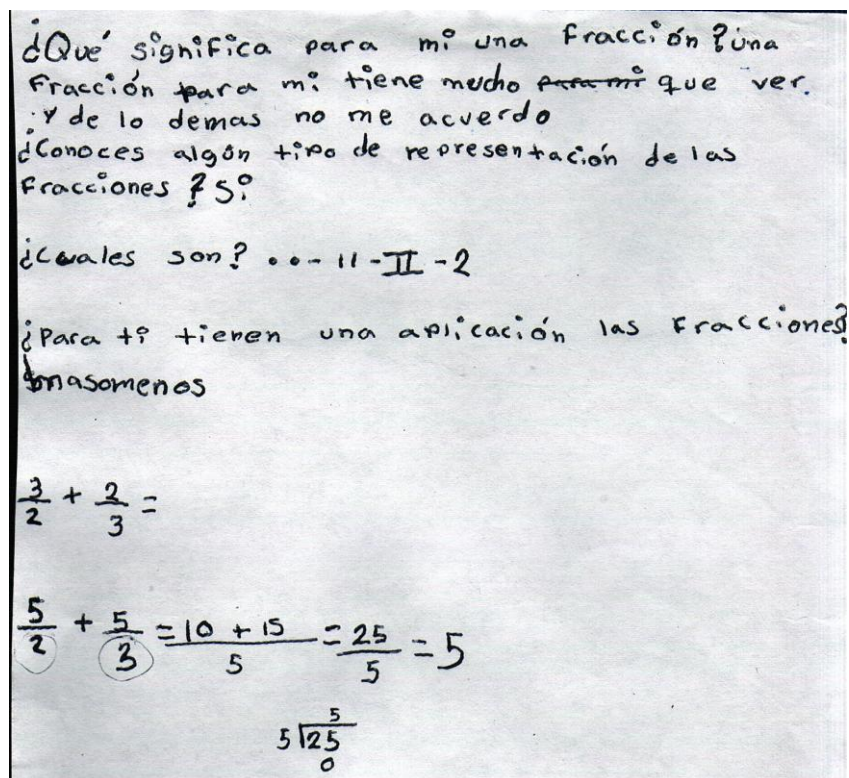 ¿Qué significa para mi una Fracción? una
Fracción para mi tiene mucho para mi que ver.
y de lo demas no me acuerdo
¿Conoces algún tipo de representación de las
Fracciones? Si
¿Cuales son? • • - 11 - II - 2
¿Para ti tienen una aplicación las Fracciones?
masomenos
3/2 + 2/3 =
5/2 + 5/3 = 10 + 15 / 5 = 25/5 = 5
5
5√25
0